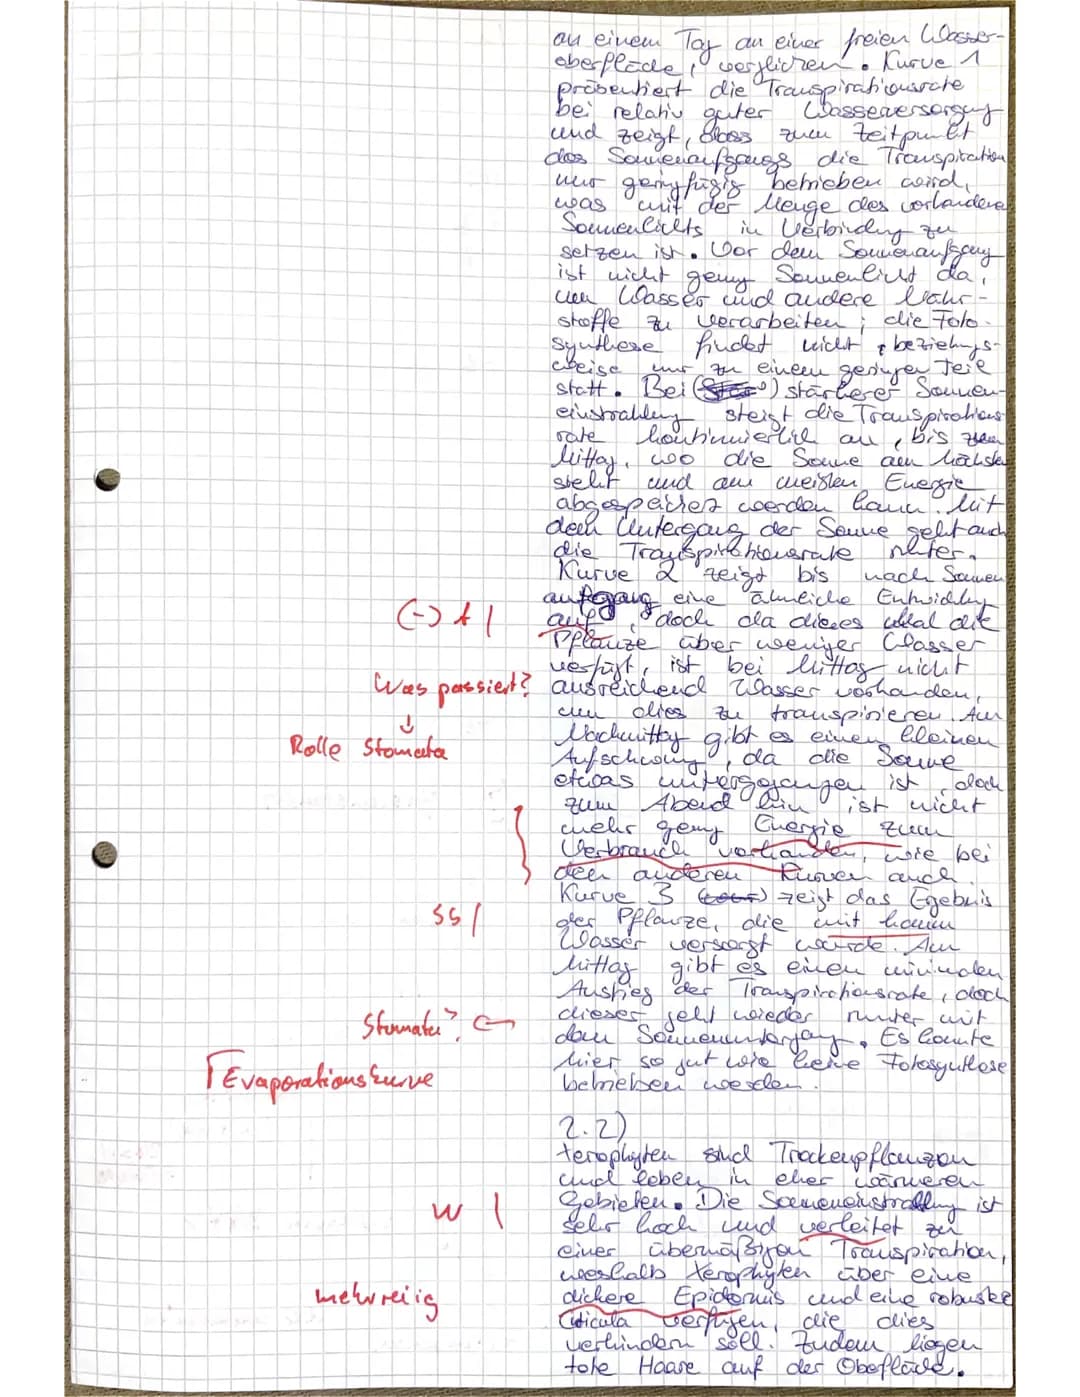 an einem Tag an einer freien Wasser-
oberfläche, verglichen. Kurve 1
präsentiert die Transpirationsrate
bei relativ guter Wasserversorgung
und zeigt, dass zum Zeitpunkt
des Sonnenaufgangs die Transpiration
nur geringfügig betrieben wird,
was mit der Menge des vorhandene
Sonnenlichts in Verbindung zu
setzen ist. Vor dem Sonnenaufgang
ist nicht genug Sonnenlicht da,
um Wasser und andere Nähr-
stoffe zu verarbeiten; die Foto-
synthese findet nicht, beziehungs-
weise nur zu einem geringen Teil
statt. Bei stärkerer Sonnen-
einstrahlung steigt die Transpirations
rate kontinuierlich an, bis zum
Mittag, wo die Sonne am höchsten
steht und am meisten Energie
abgespeichert werden kann. Mit
dem Untergang der Sonne geht auch
die Transpirationsrate runter.
Kurve 2 zeigt bis nach Sonnen
aufgang eine ähnliche Entwicklung
(-) A |
auf, doch da dieses Mal die
Pflanze über weniger Wasser
verfügt, ist bei Mittag nicht
Was passiert?
ausreichend Wasser vorhanden,
um dies zu transpirieren. Am
↓
Nachmittag gibt es einen kleinen
Rolle Stomata
Aufschwung, da die Sonne
etwas untergegangen ist, doch
zum Abend hin ist nicht
mehr genug Energie zum
Verbrauch vorhanden, wie bei
den anderen Kurven auch.
Kurve 3 zeigt das Ergebnis
SS |
der Pflanze, die mit kaum
Wasser versorgt wurde. Am
Mittag gibt es einen minimalen
Anstieg der Transpirationsrate, doch
dieser geht wieder runter mit
Stomata?
dem Sonnenuntergang. Es konnte
hier so gut wie keine Fotosynthese
Γ Evaporationskurve
betrieben werden.
2.2)
Xerophyten sind Trockenpflanzen
und leben in eher wärmeren
Gebieten. Die Sonneneinstrahlung ist
W |
sehr hoch und verleitet zu
einer übermäßigen Transpiration,
weshalb Xerophyten über eine
mehrreiig
dickere Epidermis und eine robuste
Cuticula verfügen, die dies
verhindern soll. Zudem liegen
tote Haare auf der Obefläche.